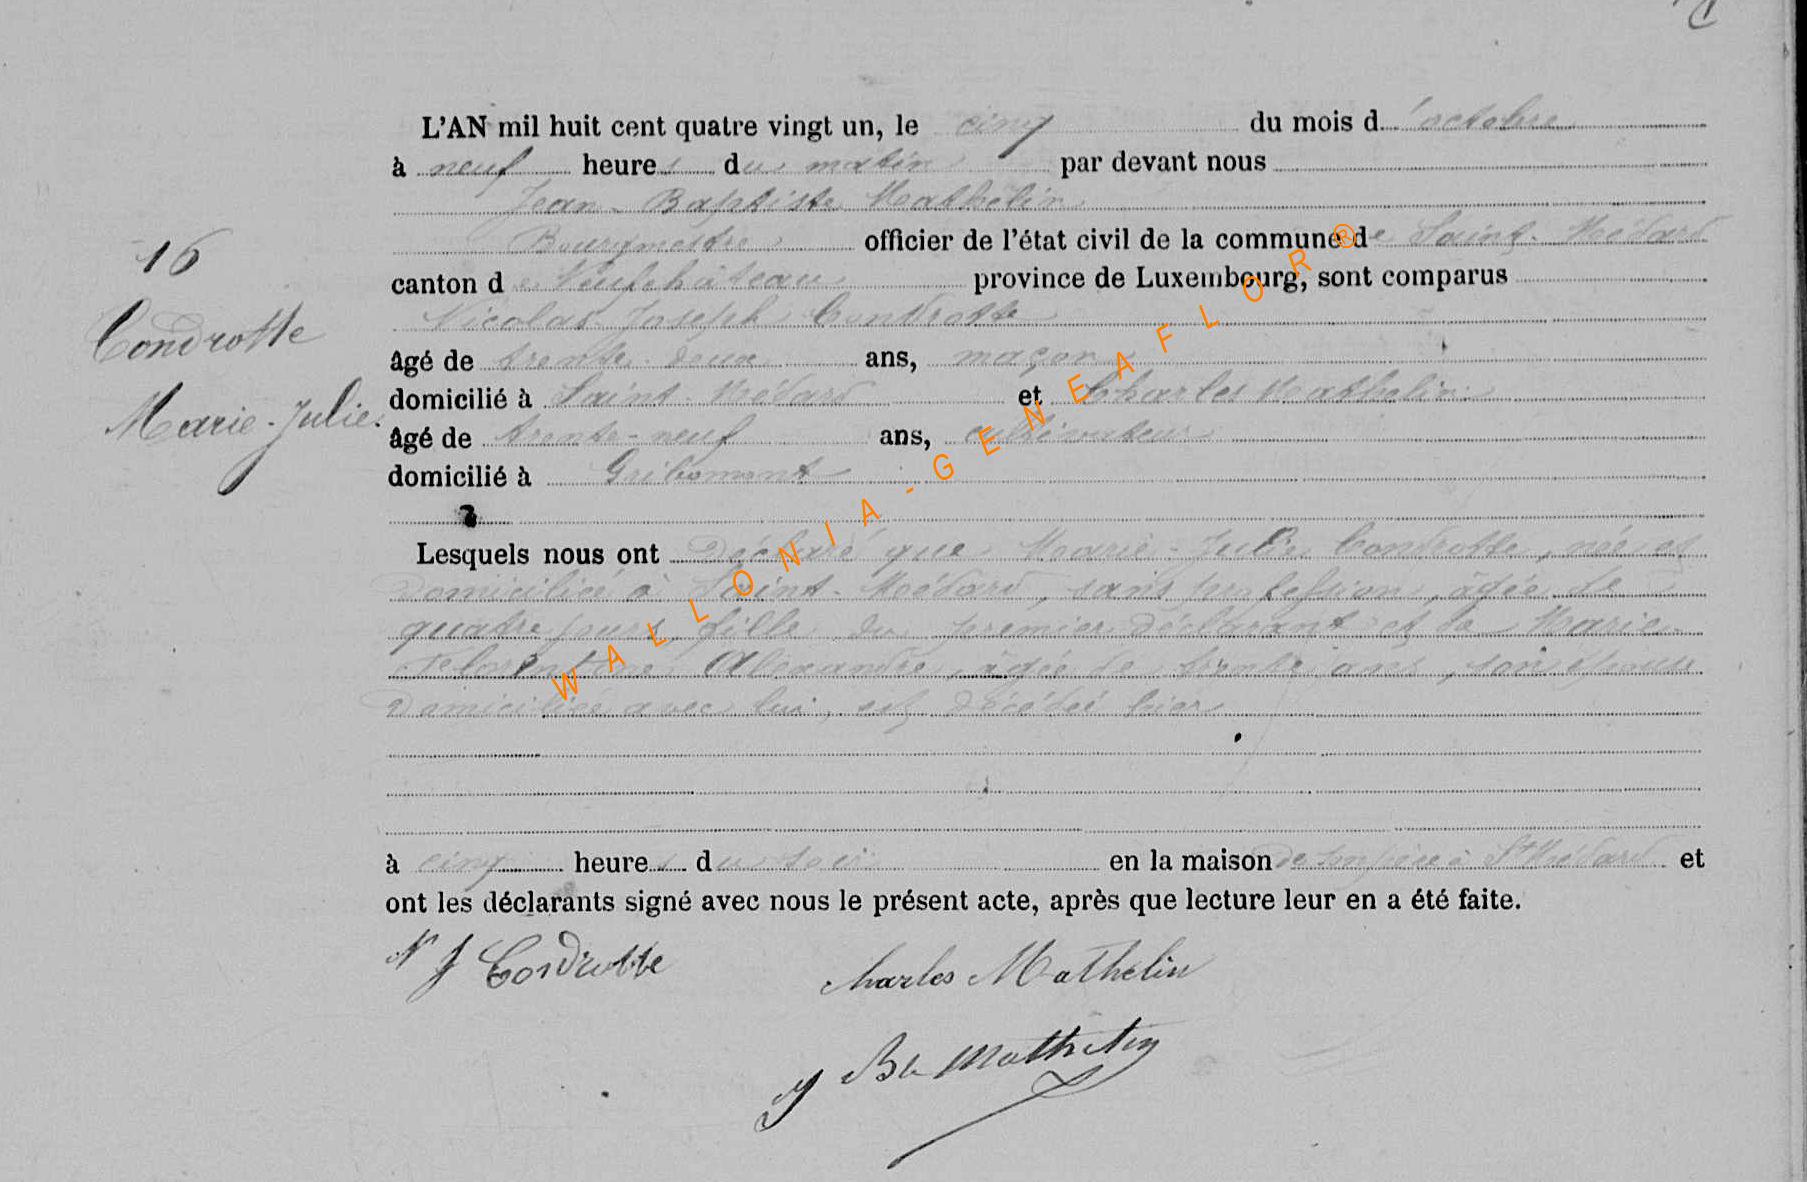 L'AN mil huit cent quatre vingt un, le cinq du mois d'octobre
à neuf heures du matin par devant nous
Jean-Baptiste Mathelin
Bourgmestre officier de l'état civil de la commune de Saint-Médard
16
canton de Neufchâteau province de Luxembourg, sont comparus
Nicolas Joseph Condrotte
Condrotte
âgé de trente-deux ans, maçon
domicilié à Saint-Médard et Charles Mathelin
Marie-Julie.
âgé de trente-neuf ans, cultivateur
domicilié à Gribomont
Lesquels nous ont déclaré que Marie-Julie Condrotte, née et
domiciliée à Saint-Médard, sans profession, âgée de
quatre jours, fille du premier déclarant et de Marie
Alexandre, âgée de trente ans, son épouse
domiciliée avec lui, est décédée hier
à cinq heures du soir en la maison à St Médard et
ont les déclarants signé avec nous le présent acte, après que lecture leur en a été faite.
N J Condrotte
Charles Mathelin
J Bte Mathelin
WALLONIA-GENEAFLOR®